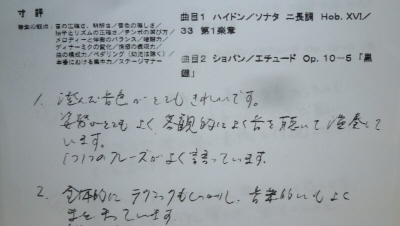 寸評
評価の観点：音の正確さ、明解さ／音色の美しさ／
拍子とリズムの正確さ／テンポの選び方／
メロディーと伴奏のバランス／
ディナーミクの変化／
曲の構成力／ペダリング
本番における集中力／ステージマナー
曲目1 ハイドン／ソナタ ニ長調 Hob. XVI／
33 第1楽章
曲目2 ショパン／エチュード Op. 10-5「黒
鍵」
1. 澄んだ音色がとてもきれいです。
姿勢がとてもよく 客観的によく音を聴いて演奏して
います。
1つ1つのフレーズがよく語っています。
2. 全体的にテクニックもしっかりし、音楽的にもよく
まとまっています。